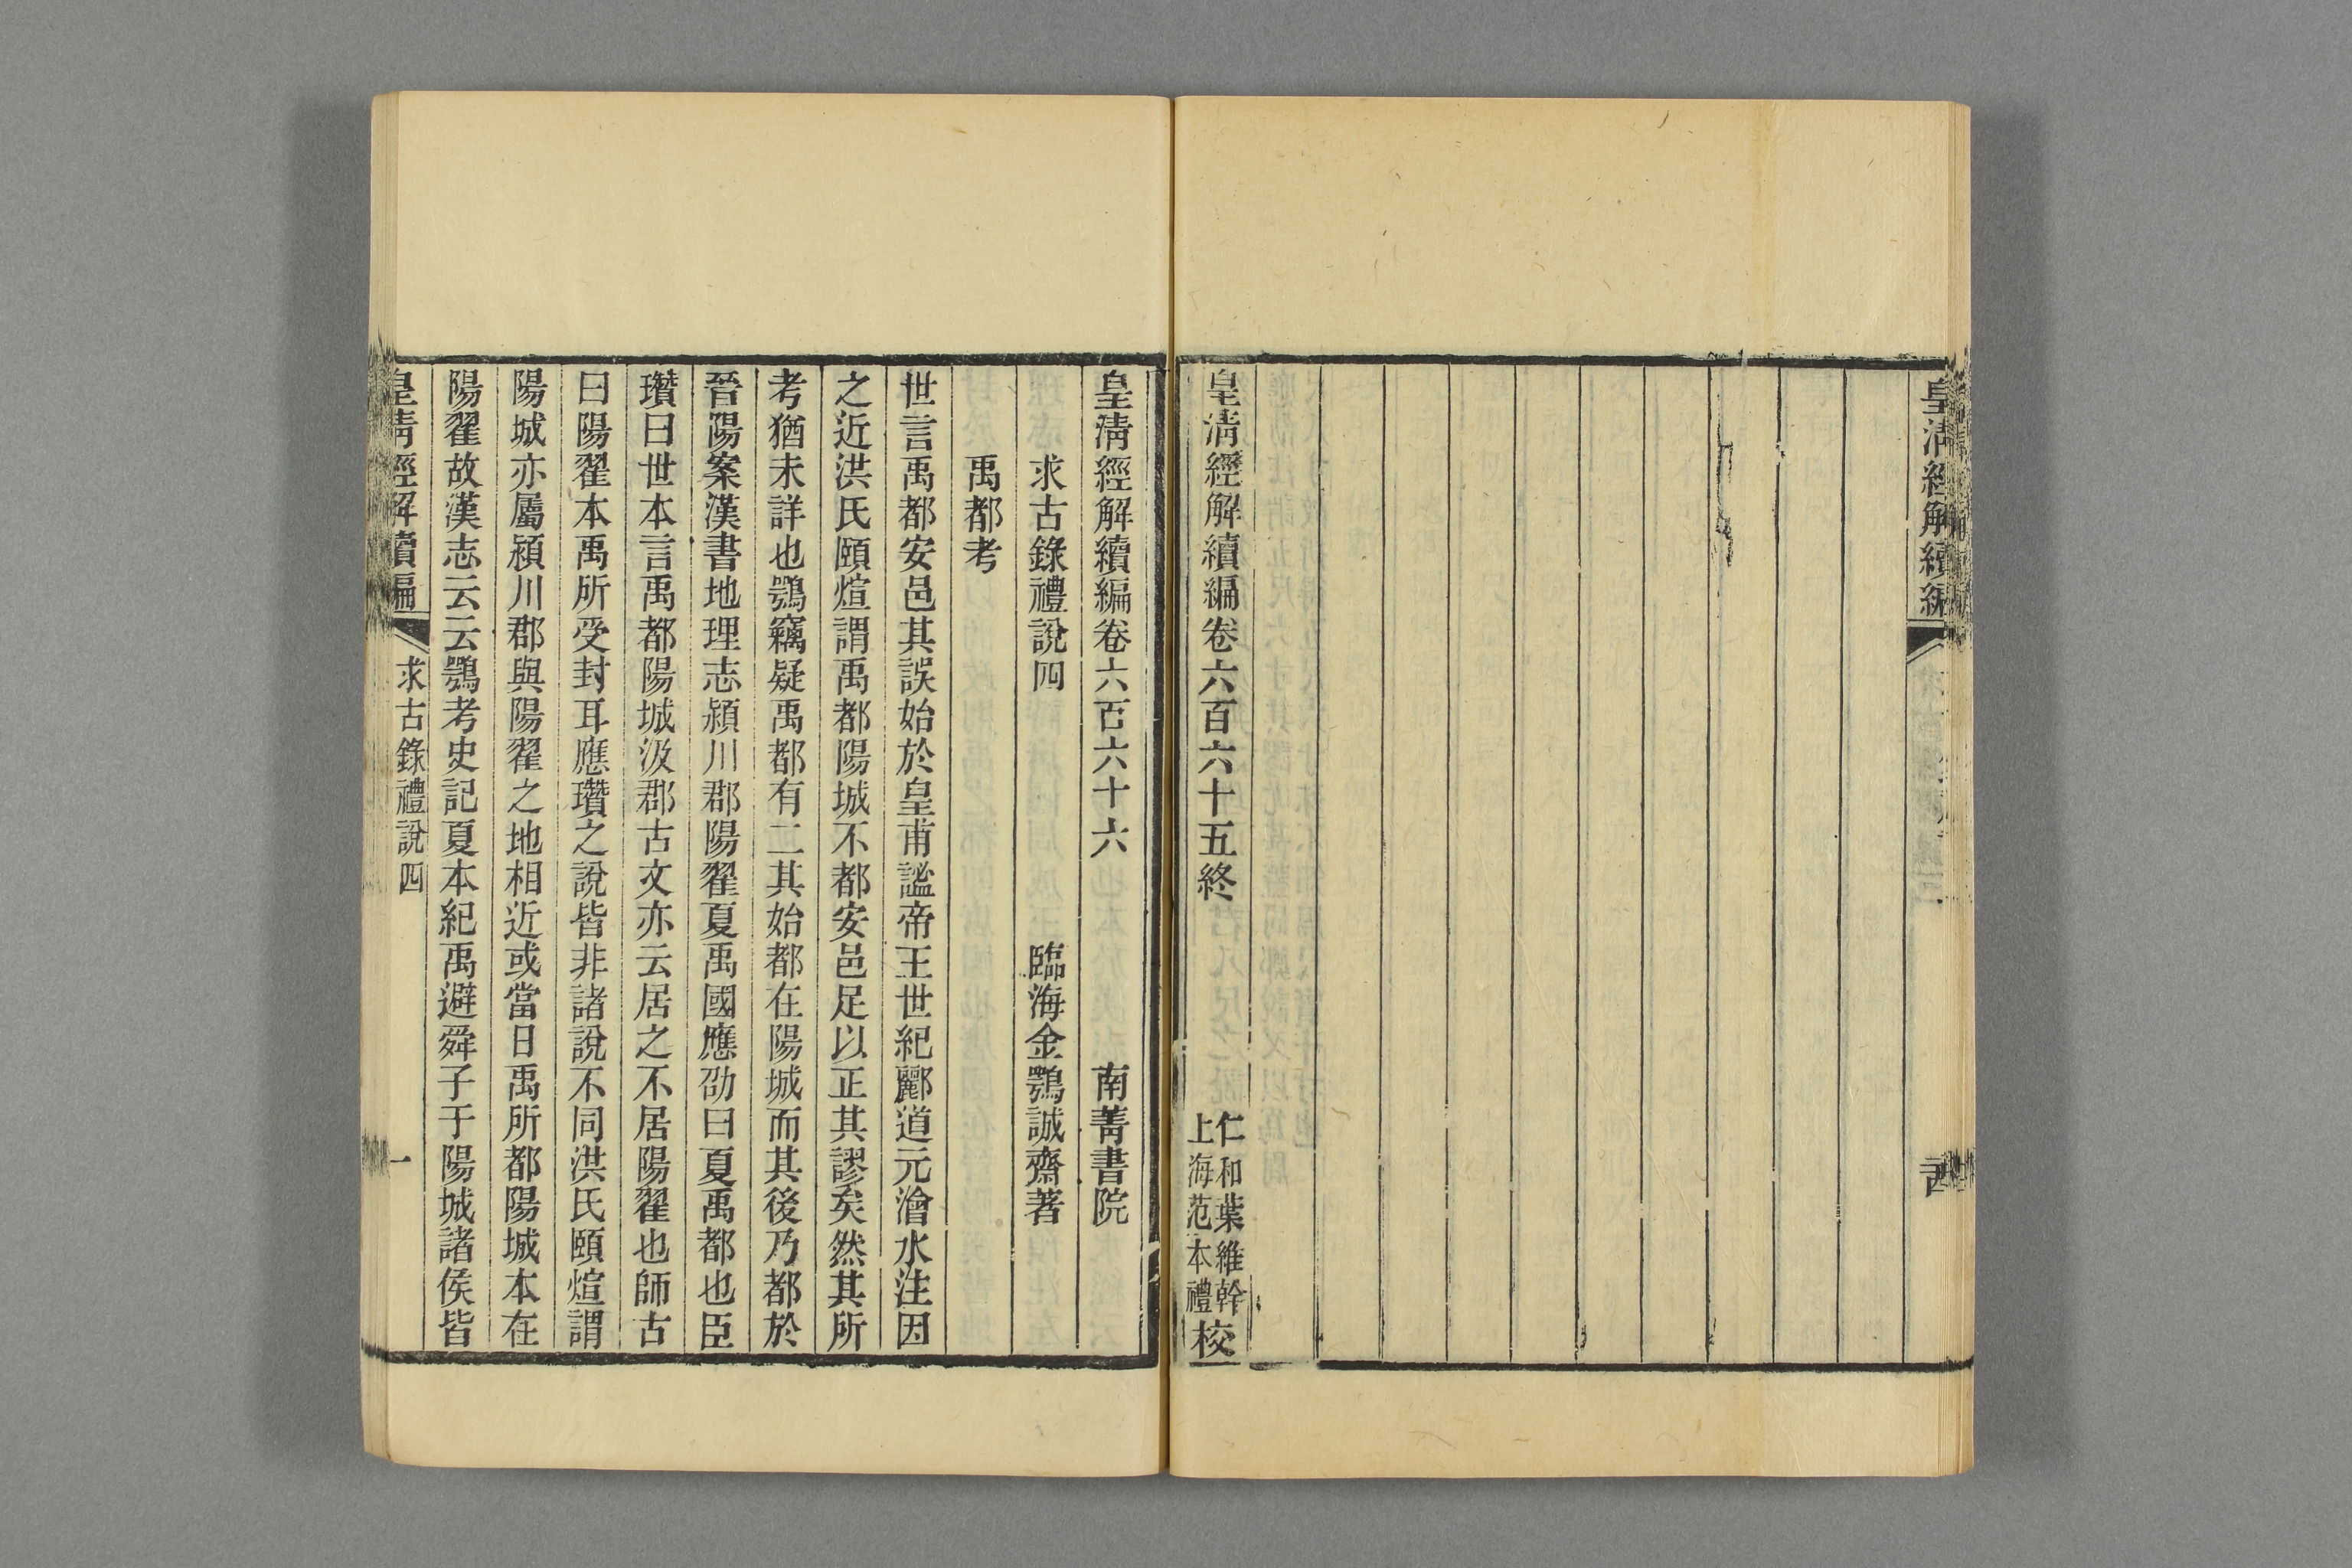 皇清經解續編
皇清經解續編卷六百六十五終
仁和葉維幹
上海范本禮
校
皇清經解續編卷六百六十六
南菁書院
求古錄禮說四
臨海金鶚誠齋著
禹都考
世言禹都安邑其誤始於皇甫謐帝王世紀酈道元澮水注因
之近洪氏頤煊謂禹都陽城不都安邑足以正其謬矣然其所
考猶未詳也鶚竊疑禹都有二其始都在陽城而其後乃都於
晉陽案漢書地理志潁川郡陽翟夏禹國應劭曰夏禹都也臣
瓚曰世本言禹都陽城汲郡古文亦云居之不居陽翟也師古
曰陽翟本禹所受封耳應瓚之說皆非諸說不同洪氏頤煊謂
陽城亦屬潁川郡與陽翟之地相近或當日禹所都陽城本在
陽翟故漢志云云鶚考史記夏本紀禹避舜子于陽城諸侯皆
皇清經解續編
求古錄禮說四
一